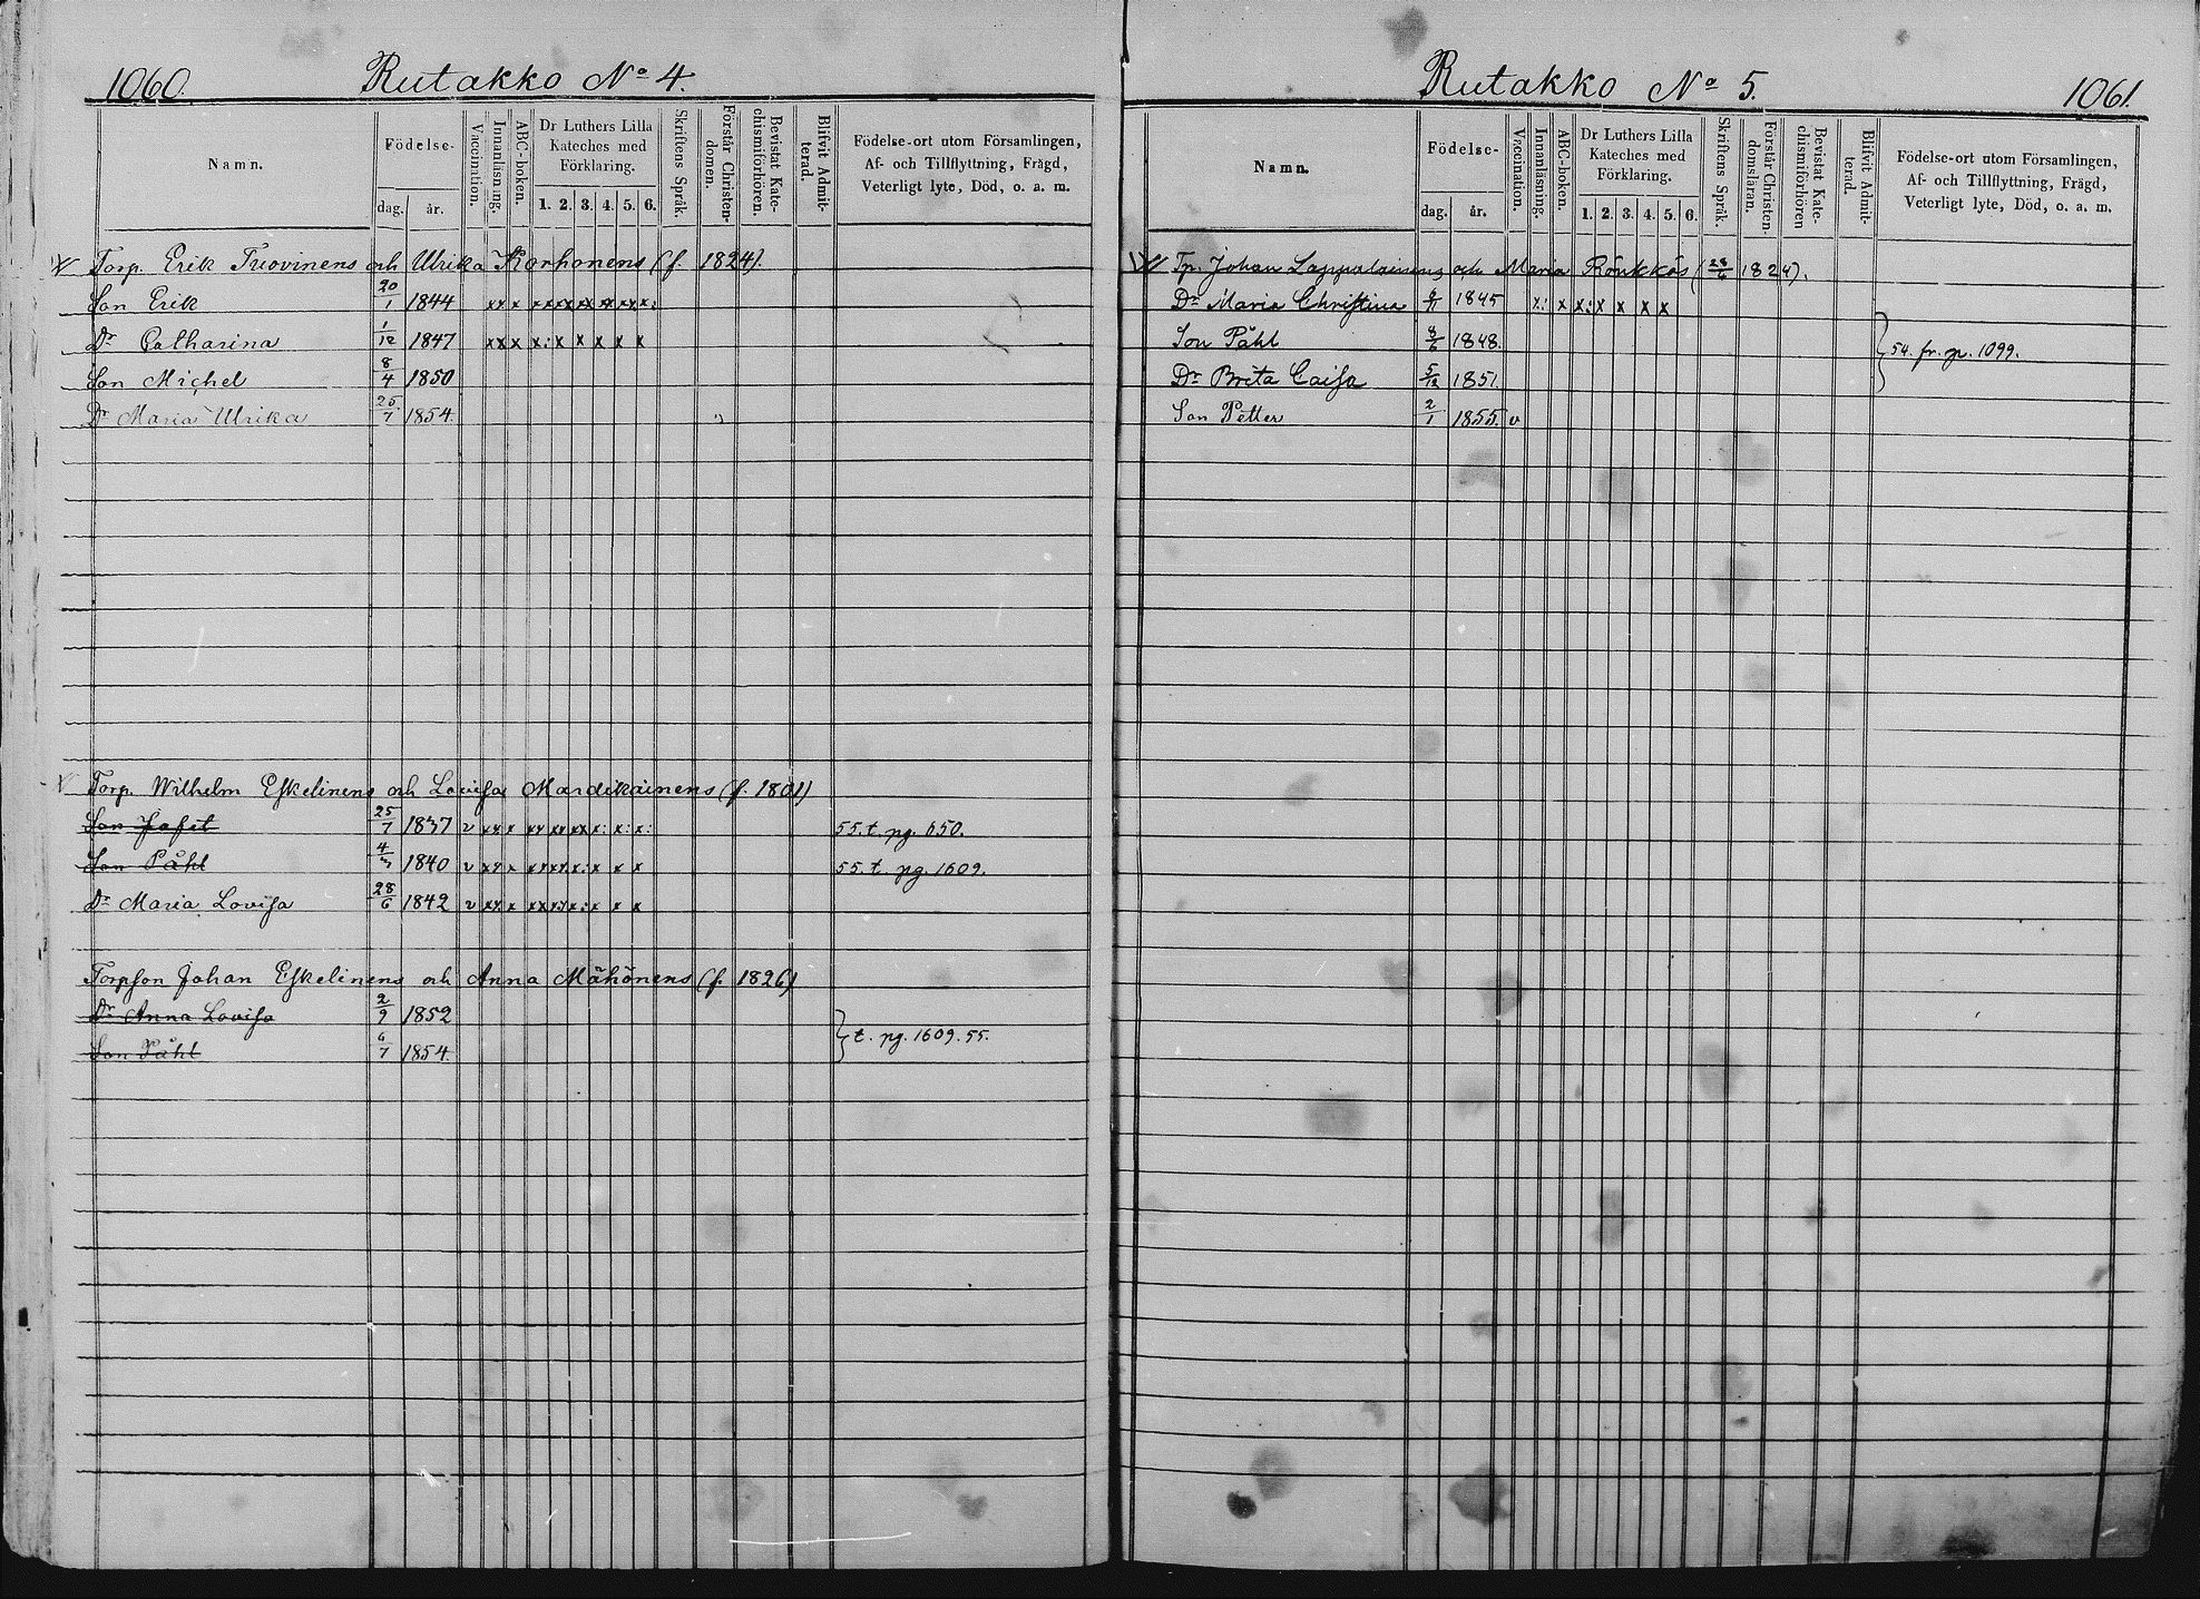 1060. Rutakko No 4.
Namn.
Födelse-
dag. år.
Vaccination.
Innanläsning.
ABC-boken.
Dr Luthers Lilla
Kateches med
Förklaring.
1. 2. 3. 4. 5. 6.
Skriftens Språk.
Förstår Christen-
domen.
Bevistat Kate-
chismiförhören.
Blifvit Admit-
terad.
Födelse-ort utom Församlingen,
Af- och Tillflyttning, Frägd,
Veterligt lyte, Död, o. a. m.
Torp. Erik Tuovinens och Ulrika Korhonens (f. 1824).
Son Erik 20/1 1844 xx x xx xx xx xx xx x:
Dr Catharina 1/12 1847 xx x x: x x x x x
Son Michel 8/4 1850
Dr Maria Ulrika 25/7 1854.
Torp. Wilhelm Eskelinens och Lovisa Mardikainens (f. 1801)
Son Jafet 25/7 1837 v xx x xx xx xx x: x: x: 55. t. pg. 650.
Son Påhl 1840 v xx x xx xx x: x x x 55. t. pg. 1609.
Dr Maria Lovisa 28/6 1842 v xx x xx xx x: x x x
Torpson Johan Eskelinens och Anna Mähönens (f. 1826)
Dr Anna Lovisa 2/9 1852
} t. pg. 1609. 55.
Son Påhl 6/7 1854.
Rutakko No 5. 1061.
Namn.
Födelse-
dag. år.
Vaccination.
Innanläsning.
ABC-boken.
Dr Luthers Lilla
Kateches med
Förklaring.
1. 2. 3. 4. 5. 6.
Skriftens Språk.
Förstår Christen-
domsläran.
Bevistat Kate-
chismiförhören
Blifvit Admit-
terad.
Födelse-ort utom Församlingen,
Af- och Tillflyttning, Frägd,
Veterligt lyte, Död, o. a. m.
Tp. Johan Lappalainens och Maria Rönkkös (28/6 1824).
Dr Maria Christina 1845 x: x x: x x x x
Son Påhl 1848.
} 54. fr. pg. 1099.
Dr Brita Caisa 5/12 1851.
Son Petter 2/1 1855. v